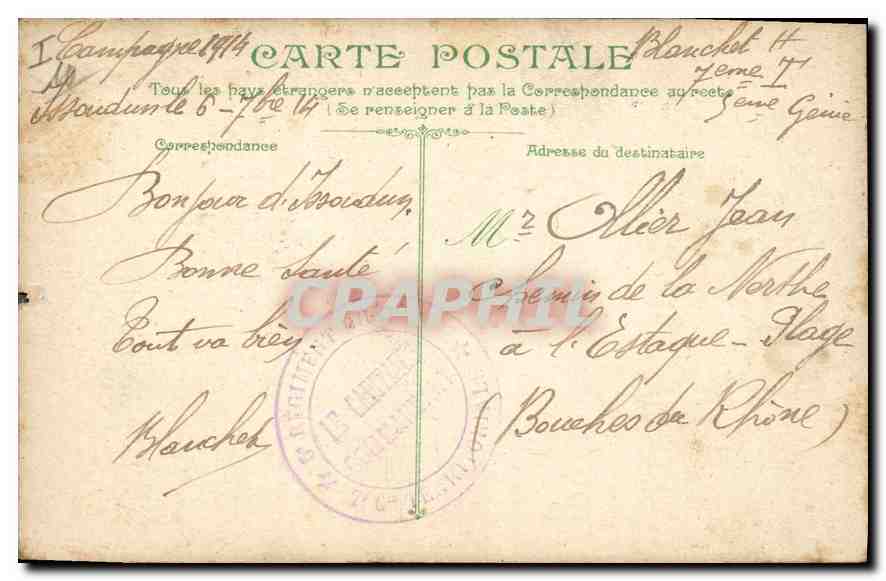 I Campagne 1914
Blanchet H
CARTE POSTALE
7eme T
Tous les pays étrangers n'acceptent pas la Correspondance au recto
5eme Génie
Issoudun le 6-7bre 14
(Se renseigner à la Poste)
Correspondance
Adresse du destinataire
Bonjour d'Issoudun
Bonne Santé
Tout va bien
Blanchet
Mr Ollier Jean
Chemin de la Nerthe
à l'Estaque-Plage
(Bouches du Rhône)
CPAPHIL
5e RÉGIMENT
LE CAPITAINE